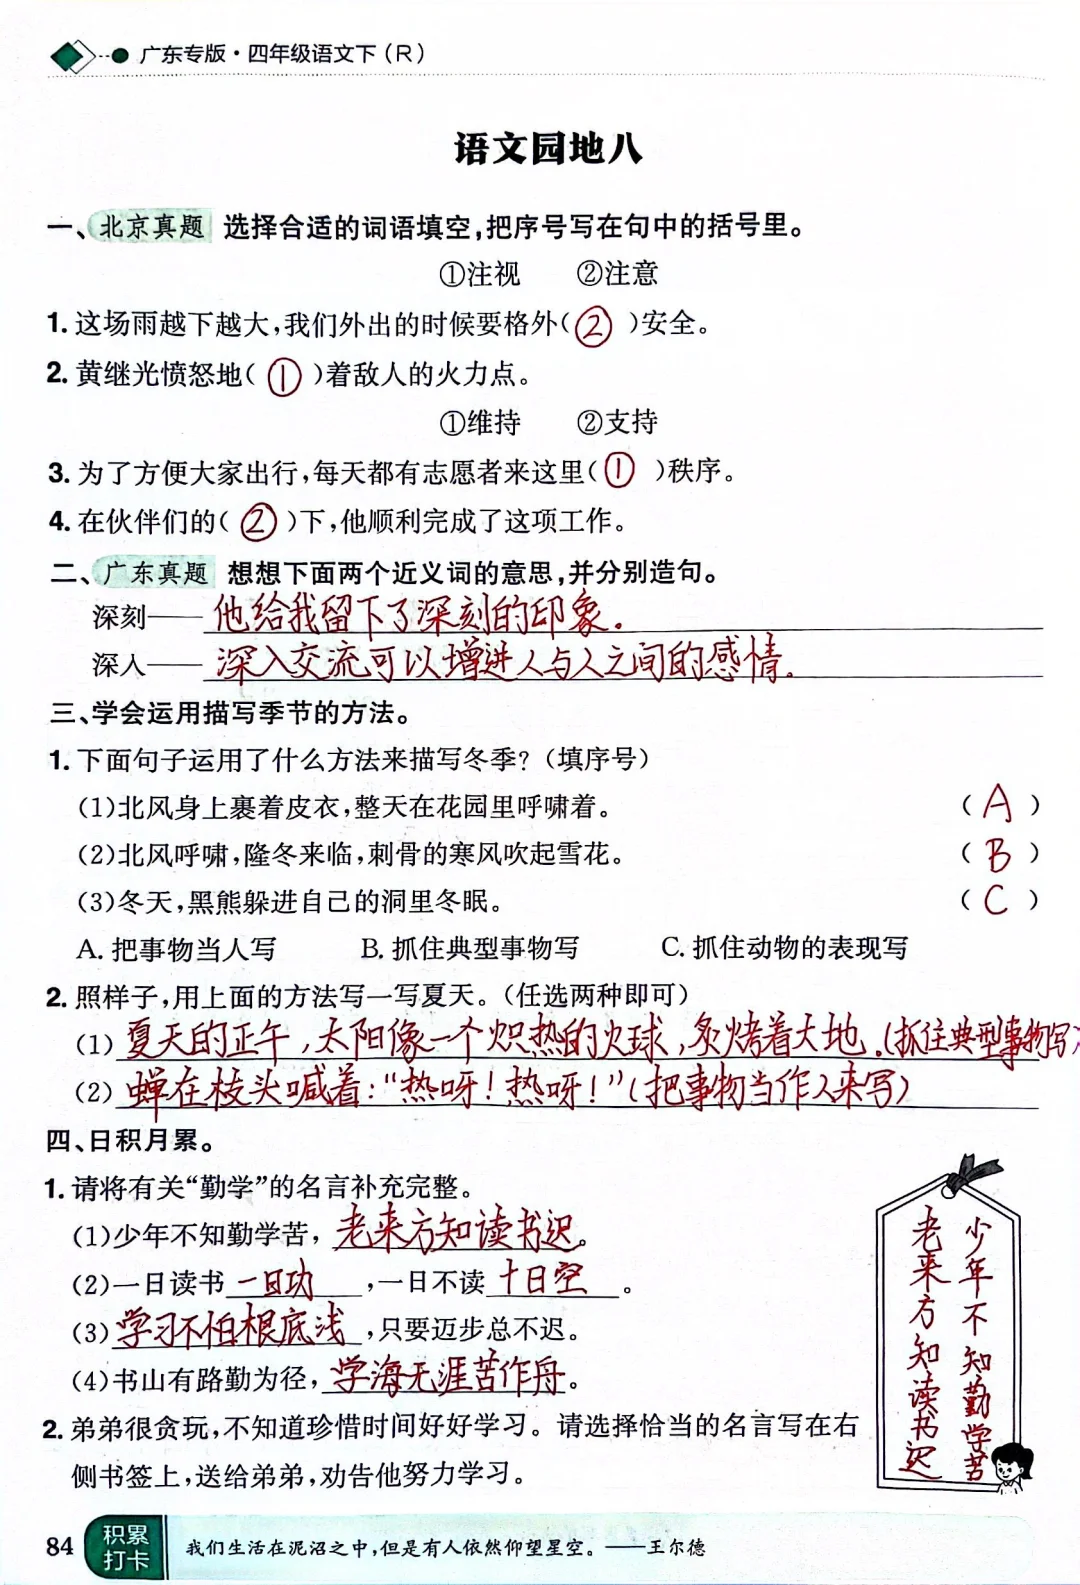 广东专版·四年级语文下（R）
语文园地八
一、北京真题 选择合适的词语填空，把序号写在句中的括号里。
①注视 ②注意
1. 这场雨越下越大，我们外出的时候要格外（②）安全。
2. 黄继光愤怒地（①）着敌人的火力点。
①维持 ②支持
3. 为了方便大家出行，每天都有志愿者来这里（①）秩序。
4. 在伙伴们的（②）下，他顺利完成了这项工作。
二、广东真题 想想下面两个近义词的意思，并分别造句。
深刻——他给我留下了深刻的印象。
深入——深入交流可以增进人与人之间的感情。
三、学会运用描写季节的方法。
1. 下面句子运用了什么方法来描写冬季？（填序号）
（1）北风身上裹着皮衣，整天在花园里呼啸着。（A）
（2）北风呼啸，隆冬来临，刺骨的寒风吹起雪花。（B）
（3）冬天，黑熊躲进自己的洞里冬眠。（C）
A. 把事物当人写 B. 抓住典型事物写 C. 抓住动物的表现写
2. 照样子，用上面的方法写一写夏天。（任选两种即可）
（1）夏天的正午，太阳像一个炽热的火球，炙烤着大地。（抓住典型事物写）
（2）蝉在枝头喊着：“热呀！热呀！”（把事物当作人来写）
四、日积月累。
1. 请将有关“勤学”的名言补充完整。
（1）少年不知勤学苦，老来方知读书迟。
（2）一日读书一日功，一日不读十日空。
（3）学习不怕根底浅，只要迈步总不迟。
（4）书山有路勤为径，学海无涯苦作舟。
2. 弟弟很贪玩，不知道珍惜时间好好学习。请选择恰当的名言写在右
侧书签上，送给弟弟，劝告他努力学习。
少年不知勤学苦
老来方知读书迟
84 积累打卡 我们生活在泥沼之中，但是有人依然仰望星空。——王尔德